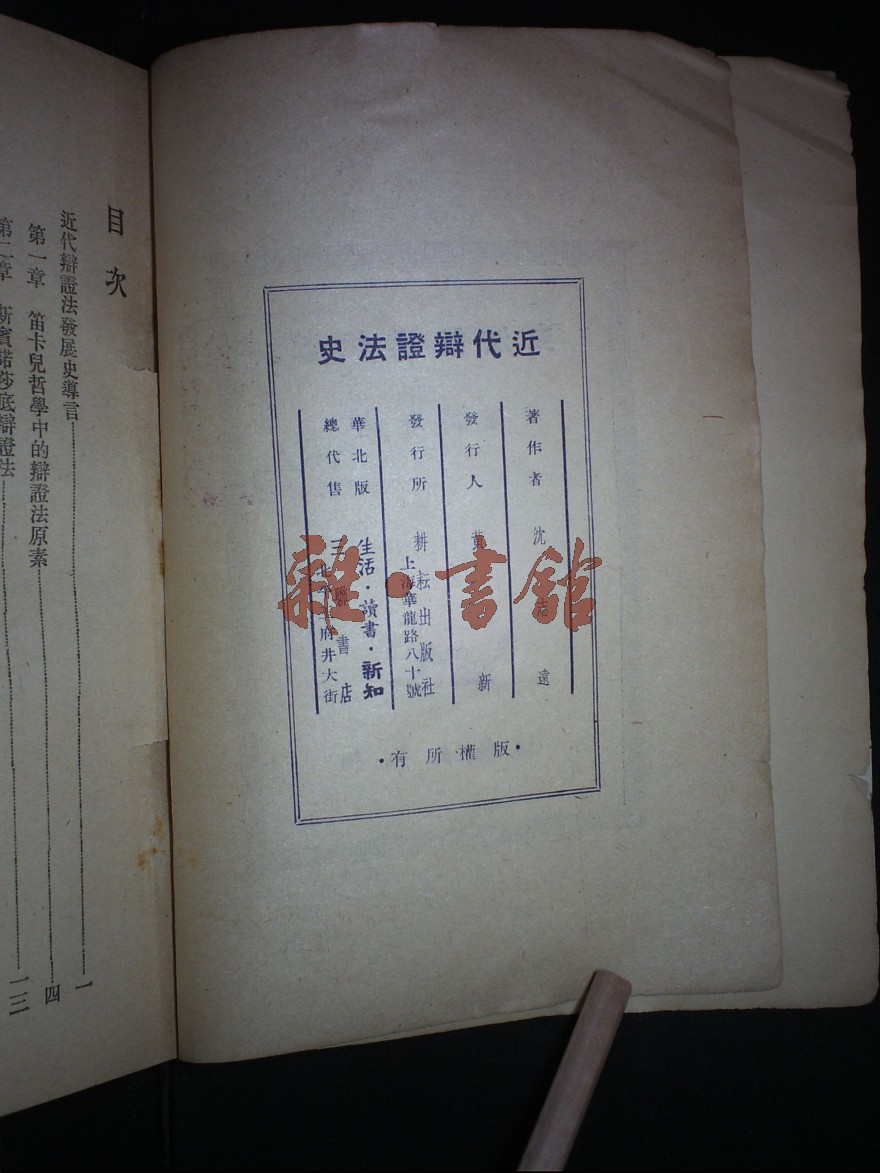 近代辯證法史
著作者 沈志遠
發行人 黃新
發行所 耕耘出版社
上海華龍路八十號
華北版 生活·讀書·新知
總代售 三聯書店
北平王府井大街
·版權所有·
雜·書館
目次
近代辯證法發展史導言 一
第一章 笛卡兒哲學中的辯證法原素 四
第二章 斯賓諾莎底辯證法 一三